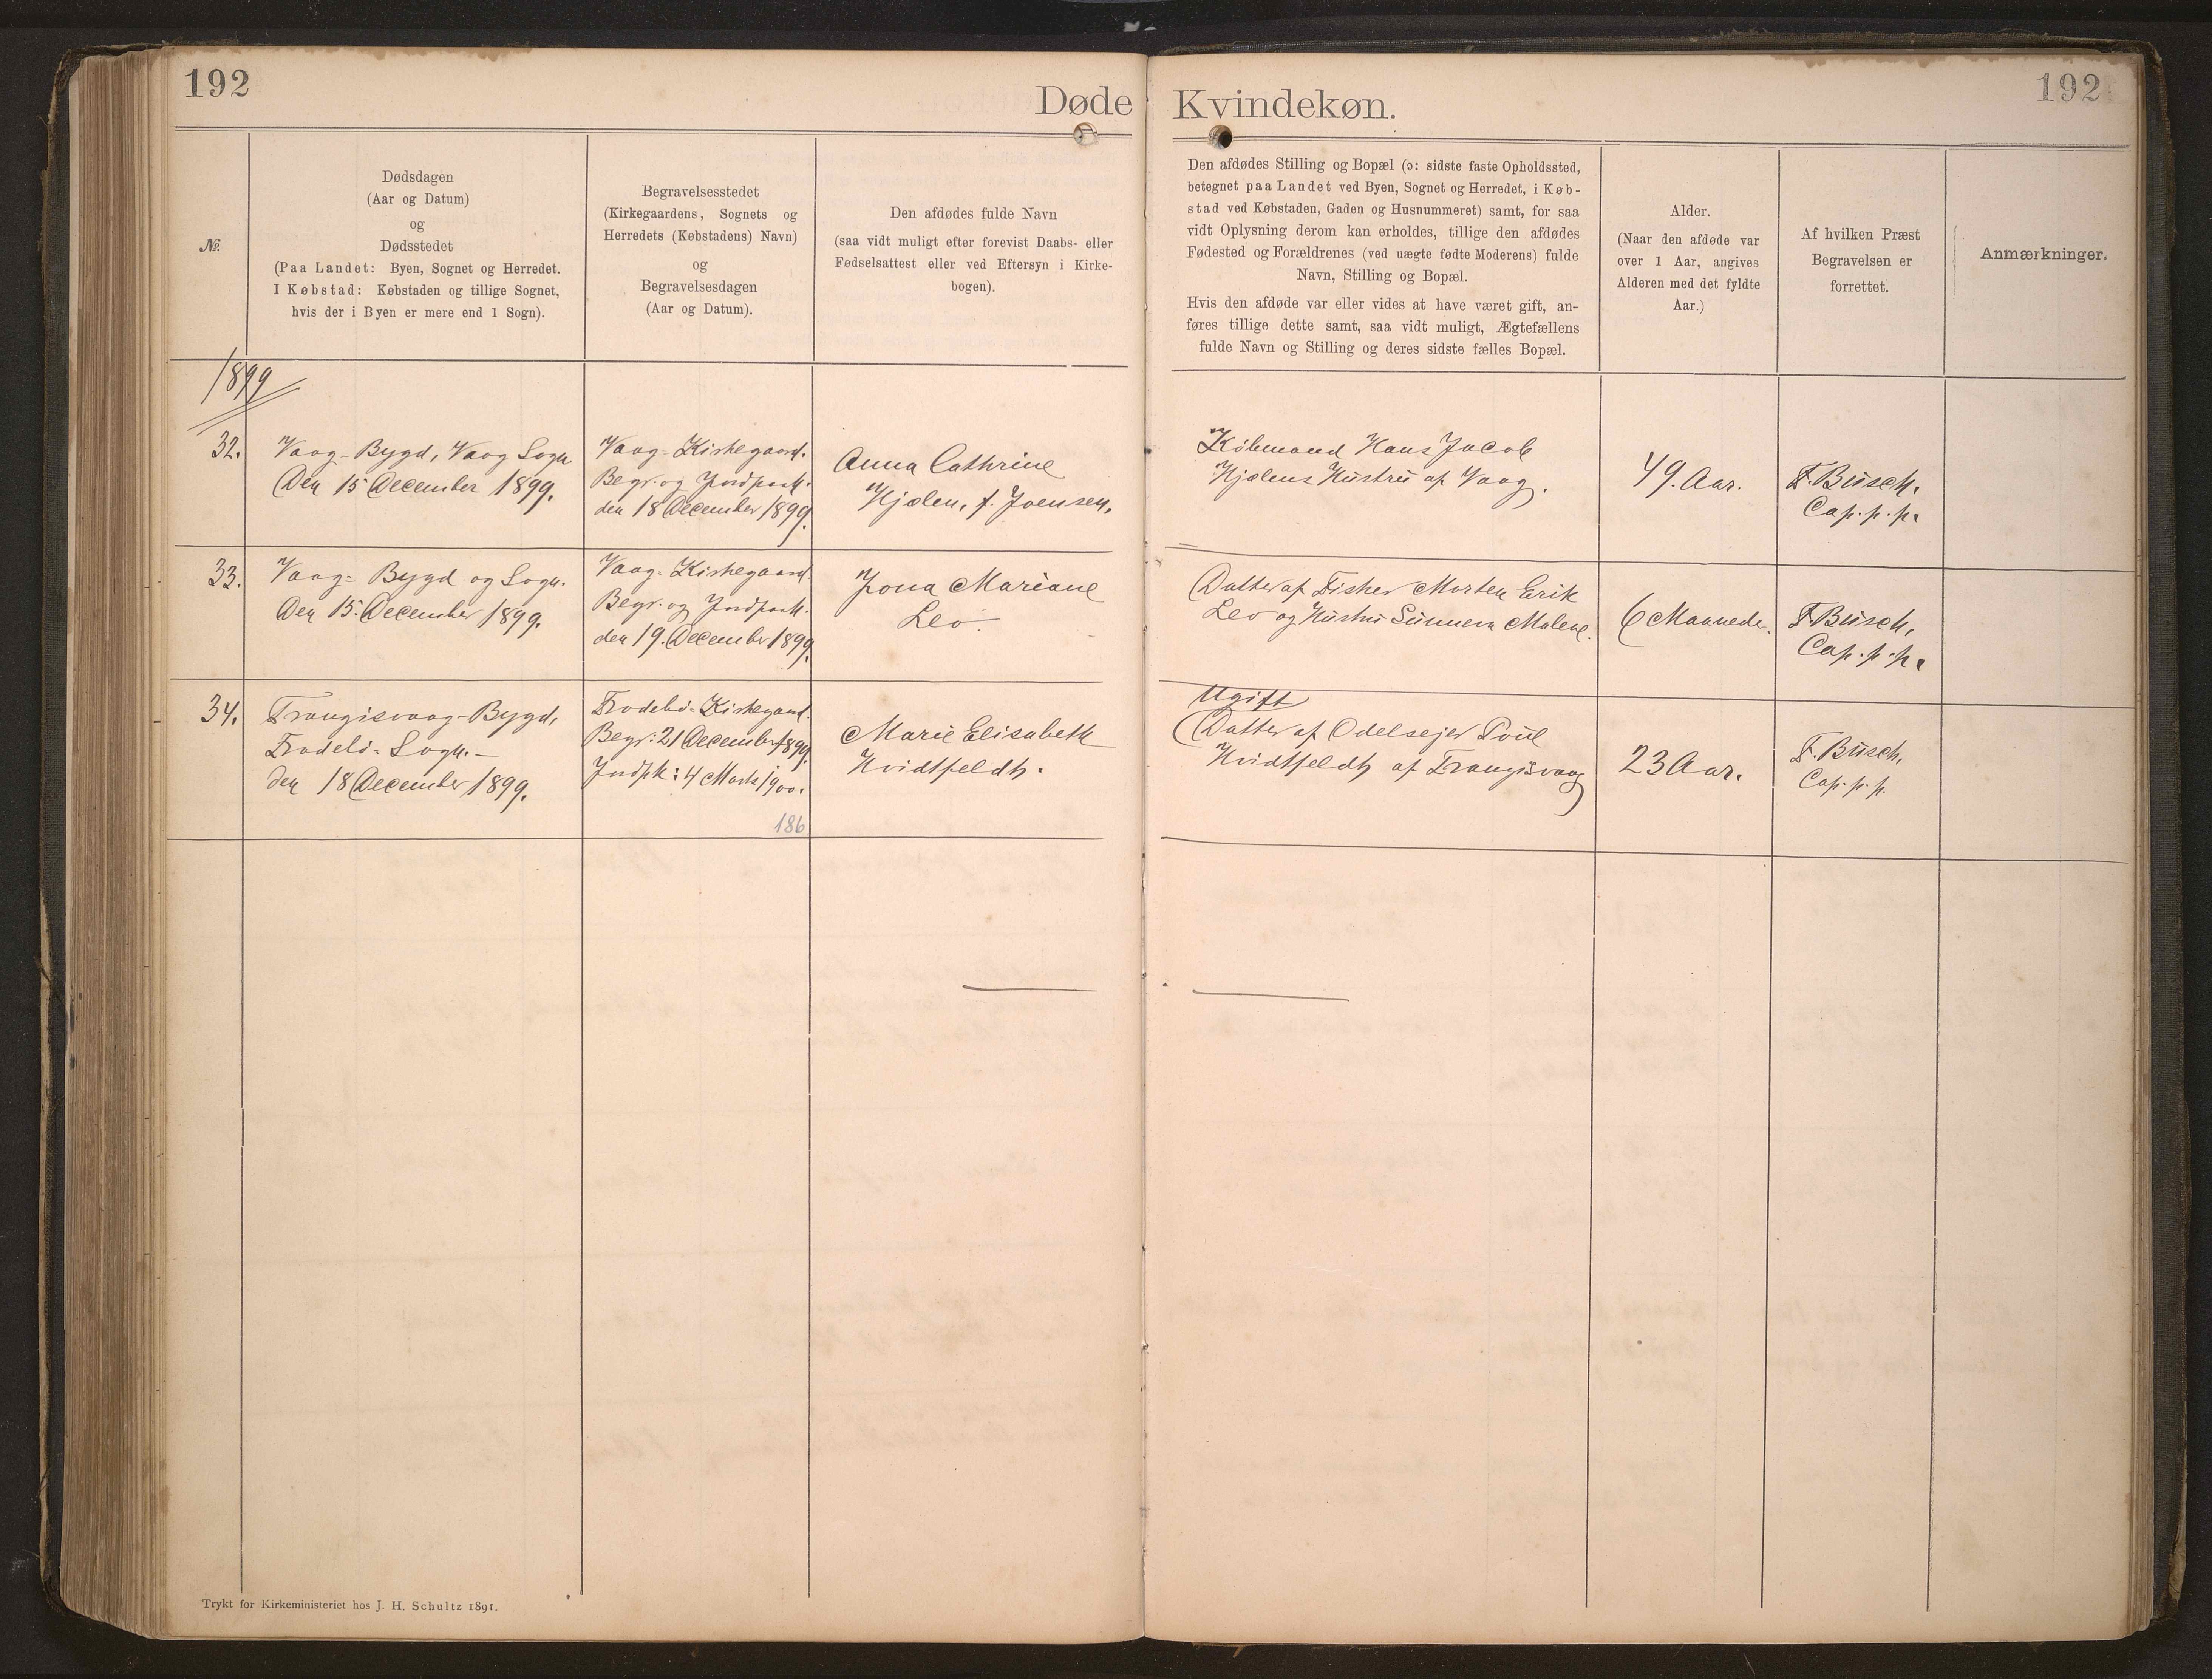 192
Døde
Kvindekøn.
192
№.
Dødsdagen
(Aar og Datum)
og
Dødsstedet
(Paa Landet: Byen, Sognet og Herredet.
I Købstad: Købstaden og tillige Sognet,
hvis der i Byen er mere end 1 Sogn).
Begravelsesstedet
(Kirkegaardens, Sognets og
Herredets (Købstadens) Navn)
og
Begravelsesdagen
(Aar og Datum).
Den afdødes fulde Navn
(saa vidt muligt efter forevist Daabs- eller
Fødselsattest eller ved Eftersyn i Kirke-
bogen).
Den afdødes Stilling og Bopæl (ɔ: sidste faste Opholdssted,
betegnet paa Landet ved Byen, Sognet og Herredet, i Køb-
stad ved Købstaden, Gaden og Husnummeret) samt, for saa
vidt Oplysning derom kan erholdes, tillige den afdødes
Fødested og Forældrenes (ved uægte fødte Moderens) fulde
Navn, Stilling og Bopæl.
Hvis den afdøde var eller vides at have været gift, an-
føres tillige dette samt, saa vidt muligt, Ægtefællens
fulde Navn og Stilling og deres sidste fælles Bopæl.
Alder.
(Naar den afdøde var
over 1 Aar, angives
Alderen med det fyldte
Aar.)
Af hvilken Præst
Begravelsen er
forrettet.
Anmærkninger.
1899
32.
Vaag-Bygd, Vaag Sogn
Den 15 December 1899.
Vaag-Kirkegaard.
Begr. og Jordpaak.
den 18 December 1899.
Anna Cathrine
Hjølen, f. Joensen,
Købmand Hans Jacob
Hjølens Hustru af Vaag.
49. Aar.
F. Busch.
Cap. p. p.
33.
Vaag= Bygd og Sogn.
Den 15. December 1899.
Vaag= Kirkegaard.
Begr. og Jordpaak.
den 19. December 1899.
Jona Mariane
Leo.
Datter af Fisker Morten Erik
Leo og Hustru Sunneva Malene.
6 Maaneder.
F Busch,
Cap. p. p.
34.
Trangisvaag-Bygd,
Frodebø= Sogn.-
den 18 December 1899.
Frodebø= Kirkegaard.
Begr: 21 December 1899.
Jordpk: 4 Marts 1900.
186
Marie Elisabeth
Hvidtfeldt.
Ugift
Datter af Odelsejer Poul
Hvidtfeldt af Trangisvaag
23 Aar.
F. Busch,
Cap. p. p.
Trykt for Kirkeministeriet hos J. H. Schultz 1891.